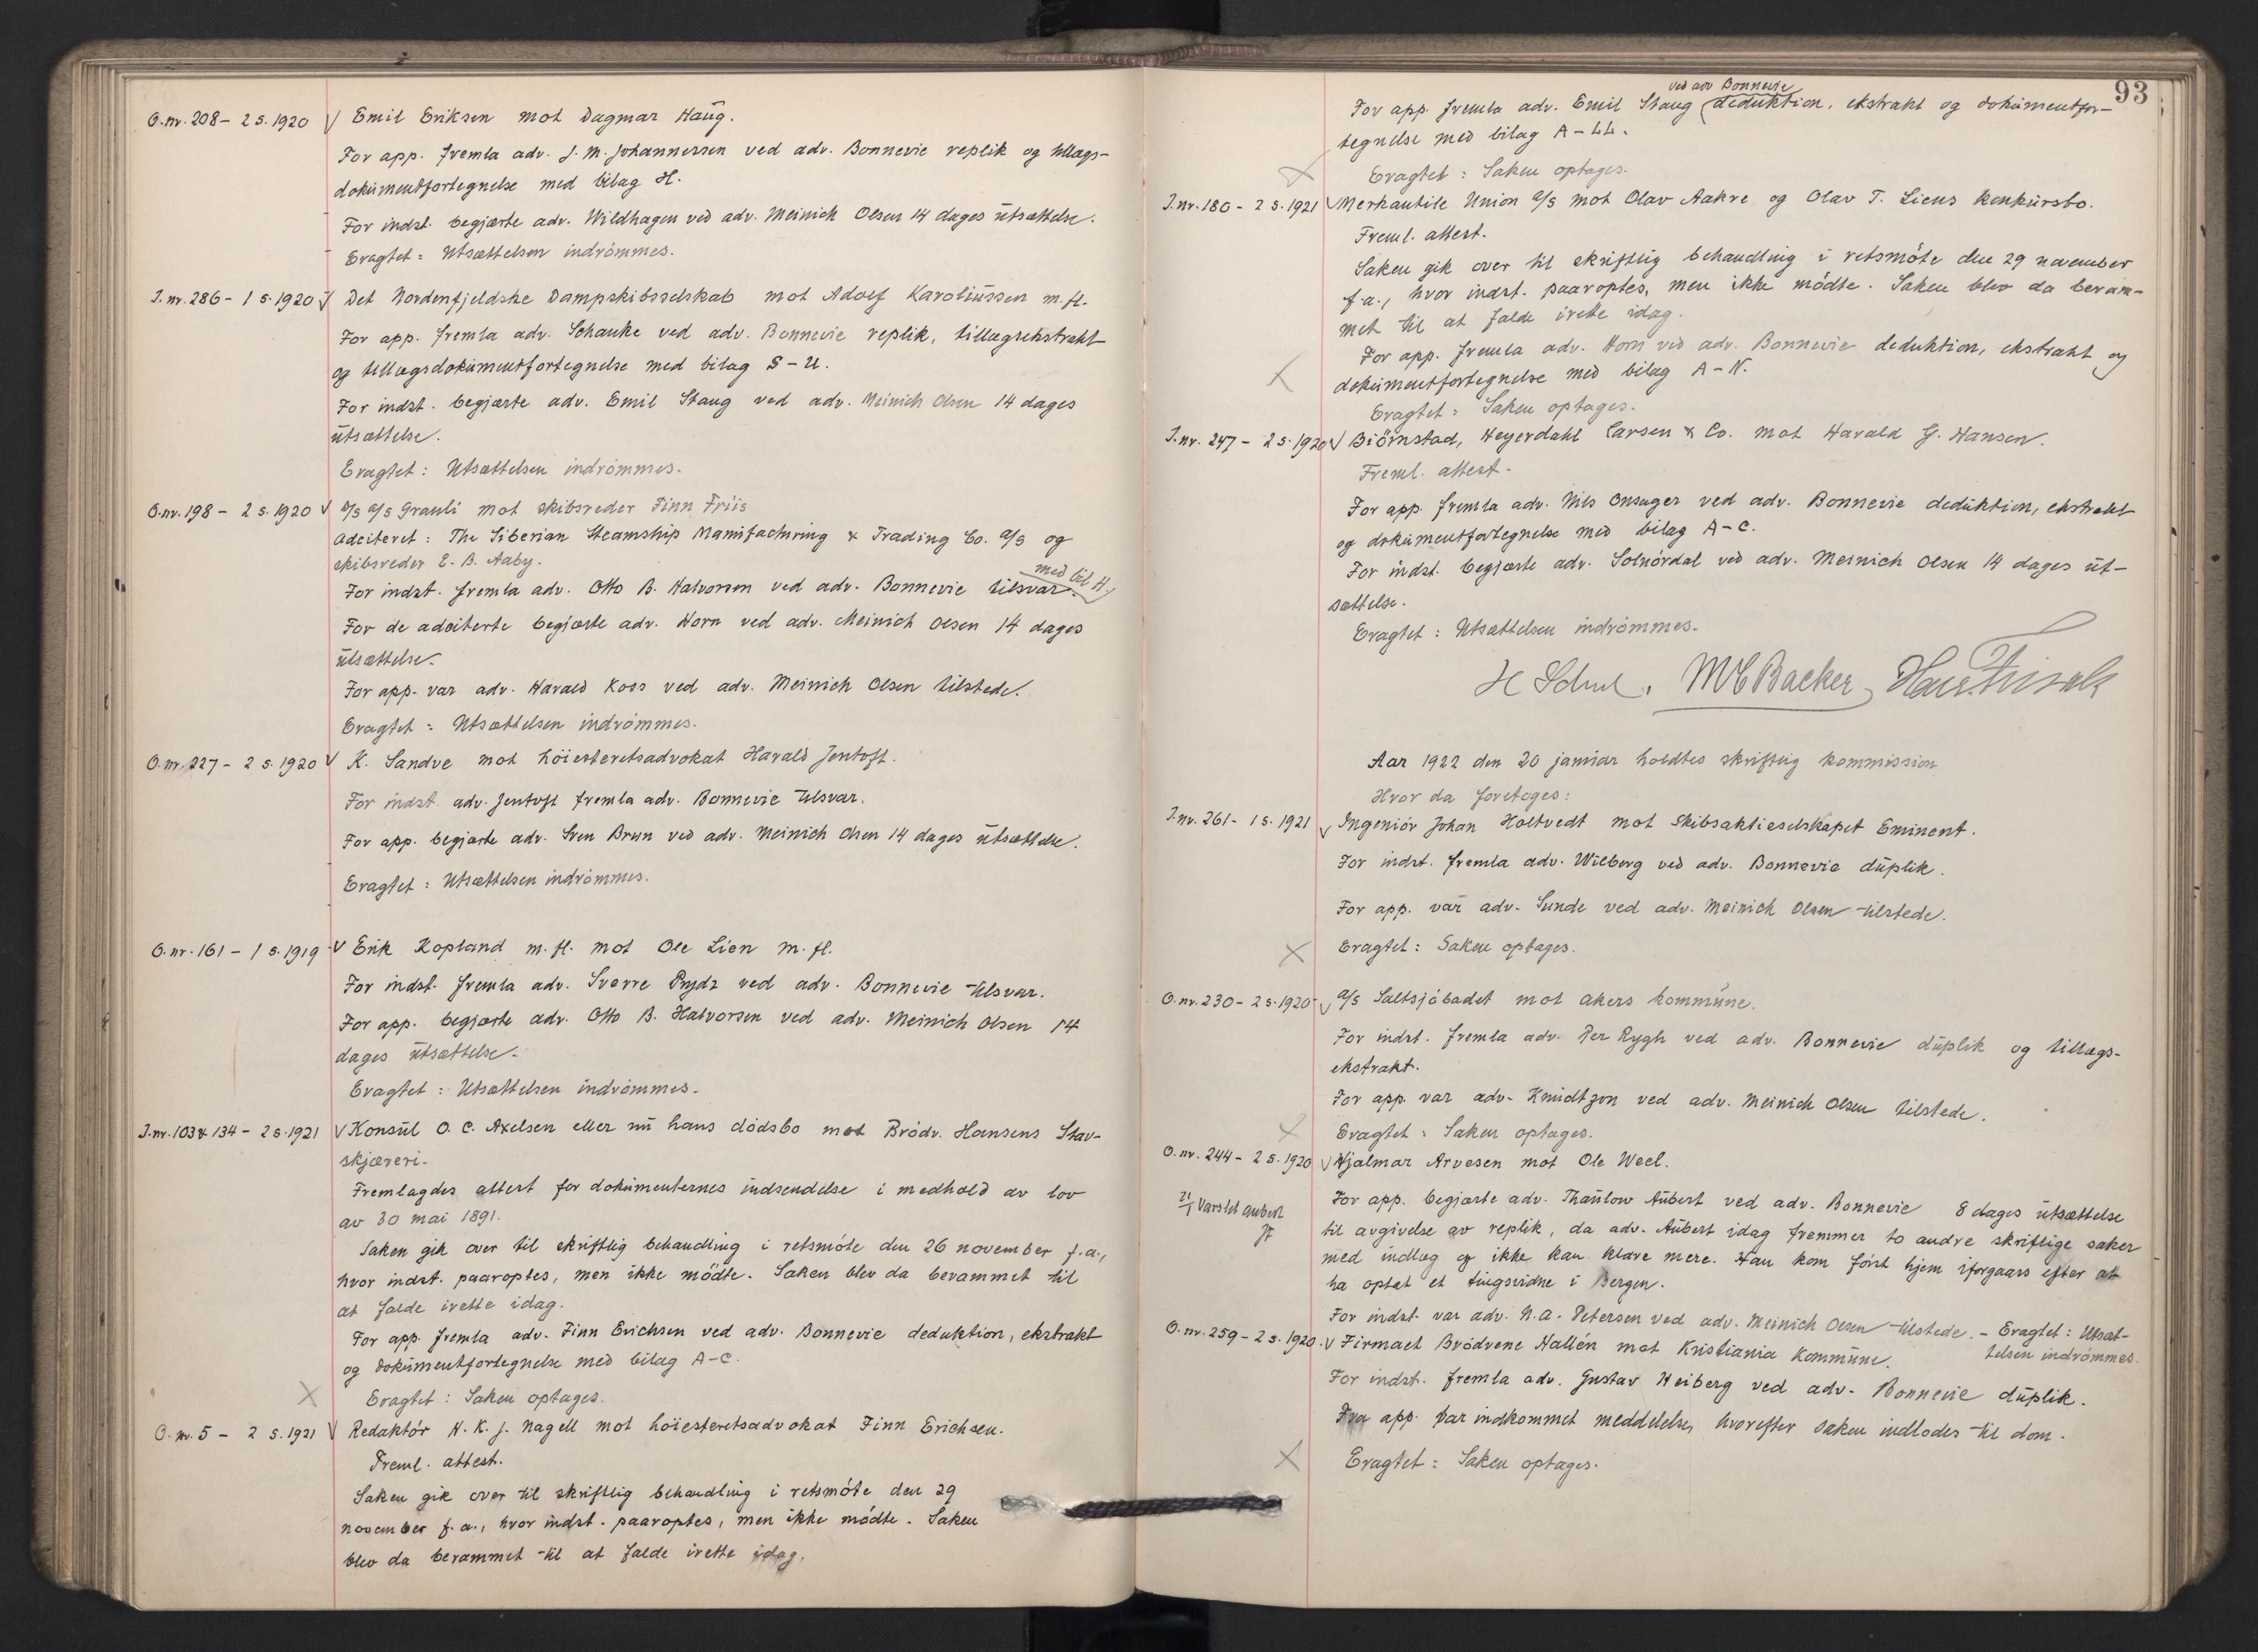 O.nr. 208 - 2 s. 1920 V Emil Eriksen mot Dagmar Haug.
For app. fremla adv. J. M. Johannessen ved adv. Bonnevie replik og tillægs-
dokumentfortegnelse med bilag H.
For indst. begjærte adv. Wildhagen ved adv. Meinich Olsen 14 dages utsættelse.
Eragtet: Utsættelsen indrømmes.
I.nr. 286 - 1 s. 1920 V Det Nordenfjeldske Dampskibsselskab mot Adolf Karoliussen m.fl.
For app. fremla adv. Schanke ved adv. Bonnevie replik, tillægsekstrakt
og tillægsdokumentfortegnelse med bilag S-U.
For indst. begjærte adv. Emil Stang ved adv. Meinich Olsen 14 dages
utsættelse.
Eragtet: Utsættelsen indrømmes.
O.nr. 198 - 2 s. 1920 V A/S A/S Granli mot skibsreder Finn Friis
Adciteret: The Siberian Steamship Manufacturing & Trading Co. A/S og
skibsreder E. B. Aaby.
For indst. fremla adv. Otto B. Halvorsen ved adv. Bonnevie tilsvar med bil H.
For de adciterte begjærte adv. Horn ved adv. Meinich Olsen 14 dages
utsættelse.
For app. var adv. Harald Koss ved adv. Meinich Olsen tilstede.
Eragtet: Utsættelsen indrømmes.
O.nr. 227 - 2 s. 1920 V K. Sandve mot höiesteretsadvokat Harald Jentoft.
For indst. adv. Jentoft fremla adv. Bonnevie tilsvar.
For app. begjærte adv. Sven Brun ved adv. Meinich Olsen 14 dages utsættelse.
Eragtet: Utsættelsen indrømmes.
O.nr. 161 - 1 s. 1919 V Erik Kopland m.fl. mot Ole Lien m.fl.
For indst. fremla adv. Sverre Prydz ved adv. Bonnevie tilsvar.
For app. begjærte adv. Otto B. Halvorsen ved adv. Meinich Olsen 14
dages utsættelse.
Eragtet: Utsættelsen indrømmes.
I.nr. 103 & 134 - 2 s. 1921 V Konsul O. C. Axelsen eller nu hans dödsbo mot Brödr. Hansens Stav-
skjæreri.
Fremlagdes attest for dokumenternes indsendelse i medhold av lov
av 30 mai 1891.
Saken gik over til skriftlig behandling i retsmöte den 26 november f.a.,
hvor indst. paaroptes, men ikke mödte. Saken blev da berammet til
at falde irette idag.
For app. fremla adv. Finn Erichsen ved adv. Bonnevie deduktion, ekstrakt
og dokumentfortegnelse med bilag A-C.
X Eragtet: Saken optages.
O.nr. 5 - 2 s. 1921 V Redaktör H. K. J. Nagell mot höiesteretsadvokat Finn Erichsen.
Freml. attest.
Saken gik over til skriftlig behandling i retsmöte den 29
november f.a., hvor indst. paaroptes, men ikke mödte. Saken
blev da berammet til at falde irette idag.
93
ved adv Bonnevie
For app. fremla adv. Emil Stang deduktion, ekstrakt og dokumentfor-
tegnelse med bilag A-LL.
X Eragtet: Saken optages.
I.nr. 180 - 2 s. 1921 V Merkantile Union A/S mot Olav Aakre og Olav T. Liens konkursbo.
Freml. attest.
Saken gik over til skriftlig behandling i retsmöte den 29 november
f.a., hvor indst. paaroptes, men ikke mödte. Saken blev da beram-
met til at falde irette idag.
For app. fremla adv. Horn ved adv. Bonnevie deduktion, ekstrakt og
X dokumentfortegnelse med bilag A-N.
Eragtet: Saken optages.
I.nr. 247 - 2 s. 1920 V Biörnstad, Heyerdahl Carsen & Co. mot Harald G. Hansen.
Freml. attest.
For app. fremla adv. Nils Onsager ved adv. Bonnevie deduktion, ekstrakt
og dokumentfortegnelse med bilag A-C.
For indst. begjærte adv. Solnördal ved adv. Meinich Olsen 14 dages ut-
sættelse.
Eragtet: Utsættelsen indrømmes.
M C Backer
Aar 1922 den 20 januar holdtes skriftlig kommission
Hvor da foretoges:
I.nr. 261 - 1 s. 1921 V Ingeniör Johan Holtvedt mot Skibsaktieselskapet Eminent.
For indst. fremla adv. Wilberg ved adv. Bonnevie duplik.
For app. var adv. Sunde ved adv. Meinich Olsen tilstede.
X Eragtet: Saken optages.
O.nr. 230 - 2 s. 1920 V A/S Saltsjöbadet mot Akers kommune.
For indst. fremla adv. Per Rygh ved adv. Bonnevie duplik og tillægs-
ekstrakt.
For app. var adv. Knudtzon ved adv. Meinich Olsen tilstede.
X Eragtet: Saken optages.
O.nr. 244 - 2 s. 1920 V Hjalmar Arvesen mot Ole Weel.
21/1 Varslet Aubert
For app. begjærte adv. Thaulow Aubert ved adv. Bonnevie 8 dages utsættelse
til avgivelse av replik, da adv. Aubert idag fremmer to andre skriftlige saker
med indlæg og ikke kan klare mere. Han kom först hjem iforgaars efter at
ha optat et tingsvidne i Bergen.
For indst. var adv. N. A. Petersen ved adv. Meinich Olsen tilstede. - Eragtet: Utsæt-
telsen indrømmes.
O.nr. 259 - 2 s. 1920. V Firmaet Brödrene Hallén mot Kristiania Kommune.
For indst. fremla adv. Gustav Heiberg ved adv. Bonnevie duplik.
Fra app. var indkommet meddelelse, hvorefter saken indlodes til dom.
X Eragtet: Saken optages.